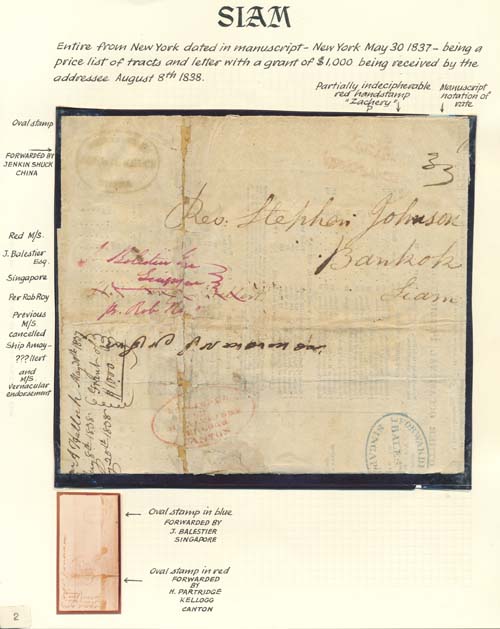 SIAM
Entire from New York dated in manuscript - New York May 30 1837 - being a
price list of tracts and letter with a grant of $1,000 being received by the
addressee August 8th 1838.
Partially indecipherable
red handstamp
"Zachery"
Manuscript
notation of
rate
Oval stamp
FORWARDED BY
JENKIN SHUCK
CHINA
Red M/S.
J. Balestier
Esq.
Singapore
Per Rob Roy
Previous
M/S
cancelled
Ship Amoy-
???llert
and
M/S
Vernacular
endorsement
Rev. Stephen Johnson
Bankok
Siam
J. Balestier Esq
Singapore
pr. Rob Roy
CANTON
FORWARDED
J. BALES
SINGAP
Oval stamp in blue
FORWARDED BY
J. BALESTIER
SINGAPORE
Oval stamp in red
FORWARDED
BY
H. PARTRIDGE
KELLOGG
CANTON
2